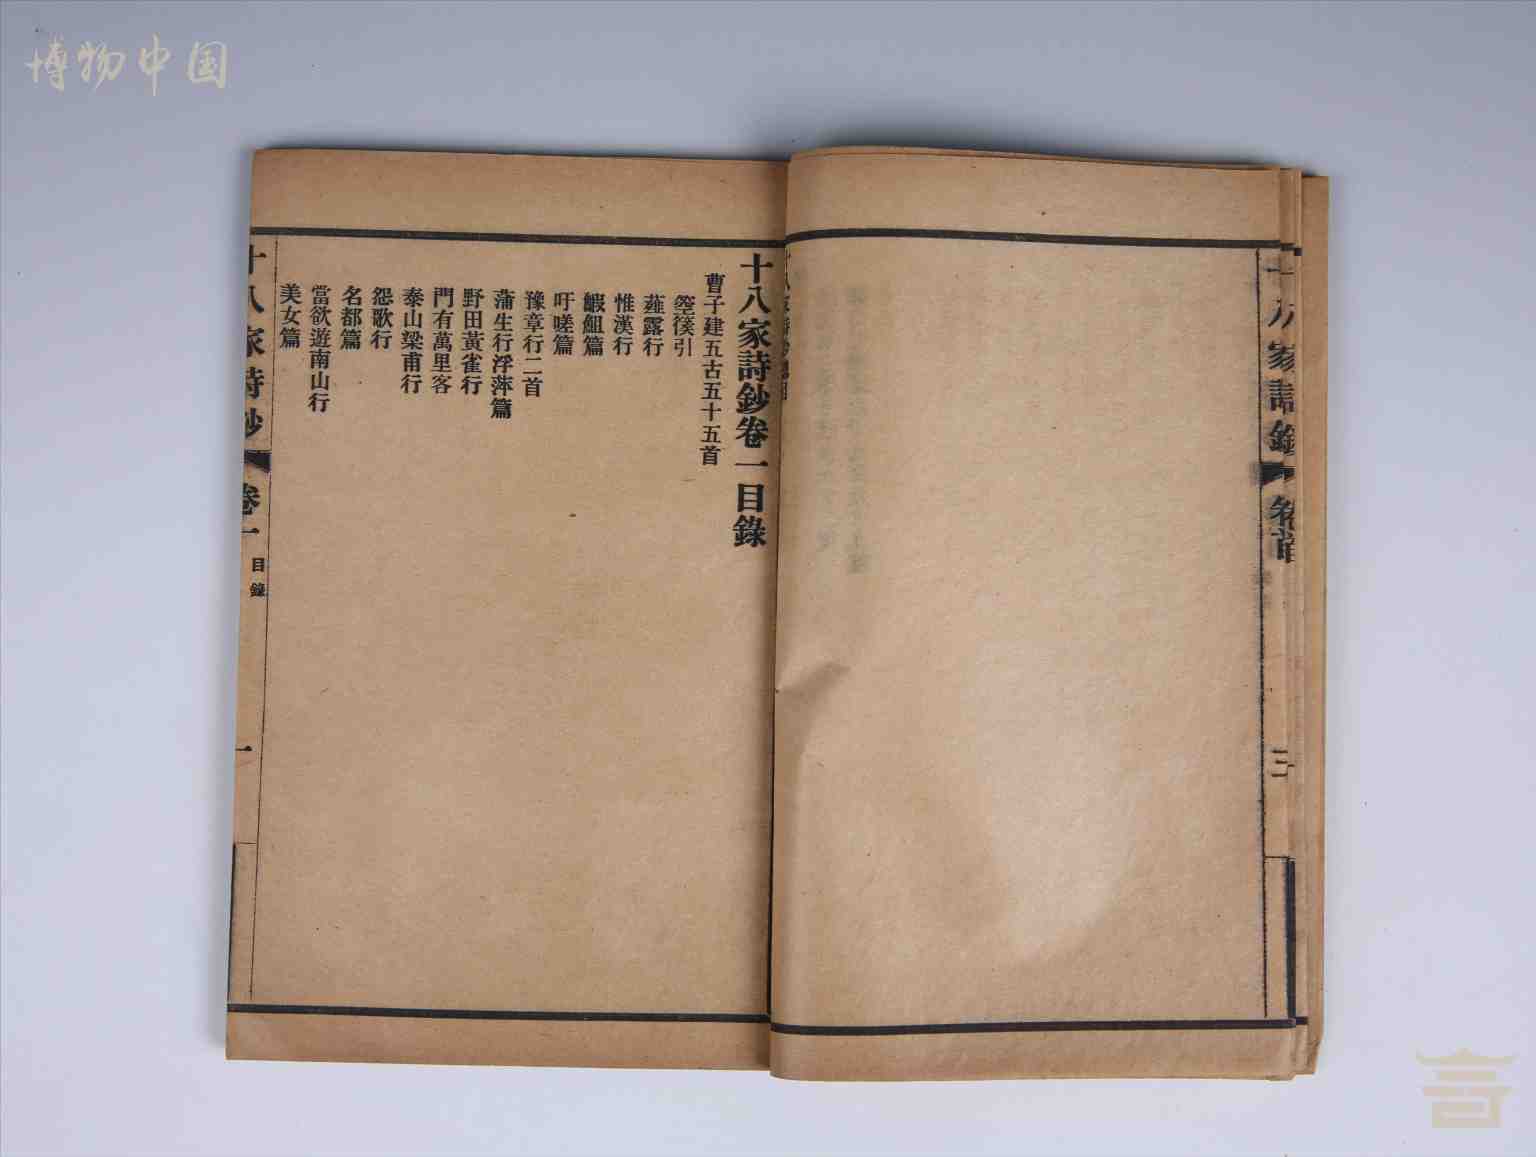 博物中国
十八家詩鈔 卷首
三
十八家詩鈔卷一目錄
曹子建五古五十五首
箜篌引
薤露行
惟漢行
鰕䱇篇
吁嗟篇
豫章行二首
蒲生行浮萍篇
野田黃雀行
門有萬里客
泰山梁甫行
怨歌行
名都篇
當欲遊南山行
美女篇
十八家詩鈔 卷一 目錄
一